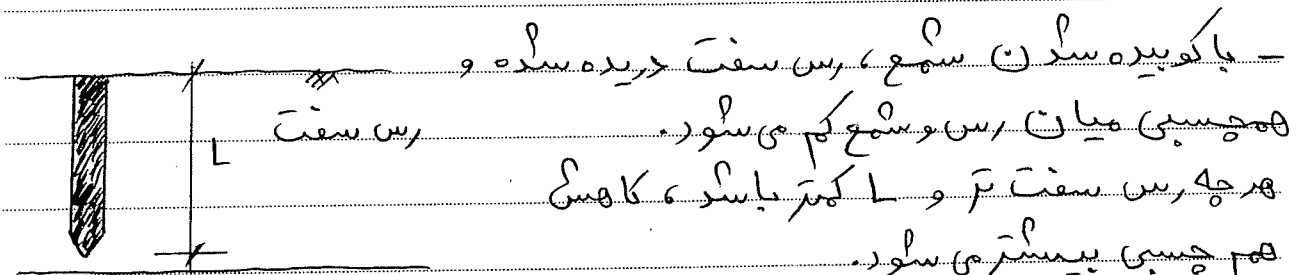 - با کوبیده شدن شمع، رس سفت دریده شده و
همچسبی میان رس و شمع کم می‌شود.
هر چه رس سفت تر و L کمتر باشد، کاهش
هم چسبی بیشتر می‌شود.
رس سفت
L